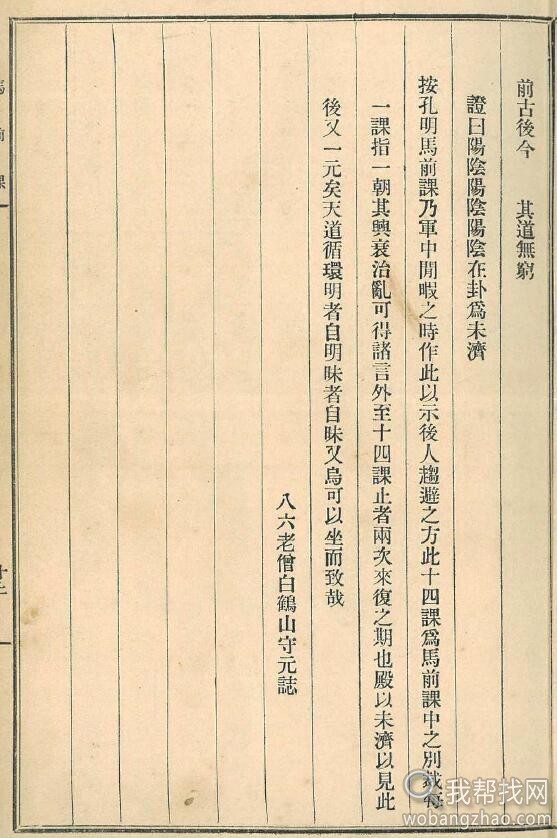 前古後今　其道無窮
證曰陽陰陽陰陽陰在卦爲未濟
按孔明馬前課乃軍中閒暇之時作此以示後人趨避之方此十四課爲馬前課中之別裁每
一課指一朝其興衰治亂可得諸言外至十四課止者兩次來復之期也殿以未濟以見此
後又一元矣天道循環明者自明昧者自昧又烏可以坐而致哉
八六老僧白鶴山守元誌
馬前課
我帮找网
wobangzhao.com